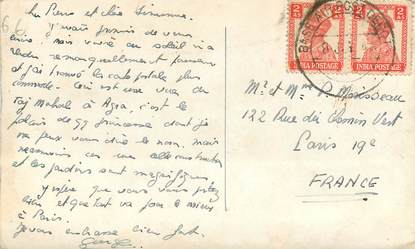 et chère Simonne.
J'avais promis de vous
écrire, mais vivre au soleil m'a
rendu remarquablement paresseux
et j'ai trouvé la carte postale plus
commode. Ceci est une vue du
Taj Mahal à Agra, c'est le
palais de qq princesse dont je
ne peux vous dire le nom, mais
néanmoins
et les jardins sont magnifiques
J'espère que vous vous portez
bien et que tout va pour le mieux
à Paris.
Je vous embrasse bien fort.
2 As
INDIA POSTAGE
2 As
INDIA POSTAGE
Mr. et Mme P. Monsseau
122 Rue du Chemin Vert
Paris 19e
FRANCE